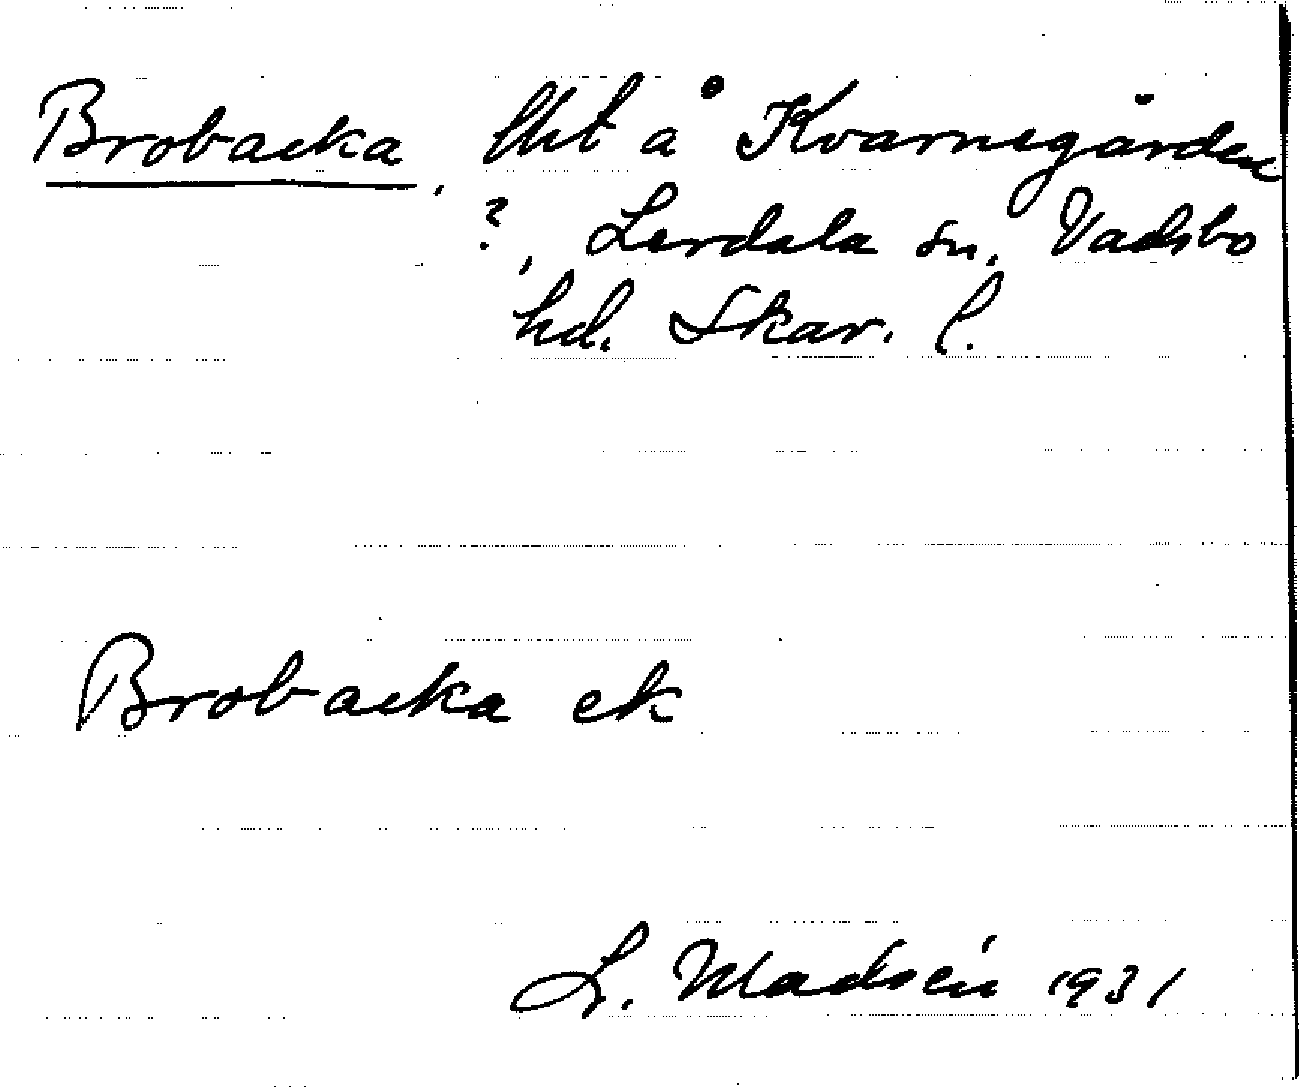 Brobacka, tht å Kvarnegården
?, Lerdala sn. Vadsbo
hd. Skar. l.
Brobacka ek
L. Madsén 1931